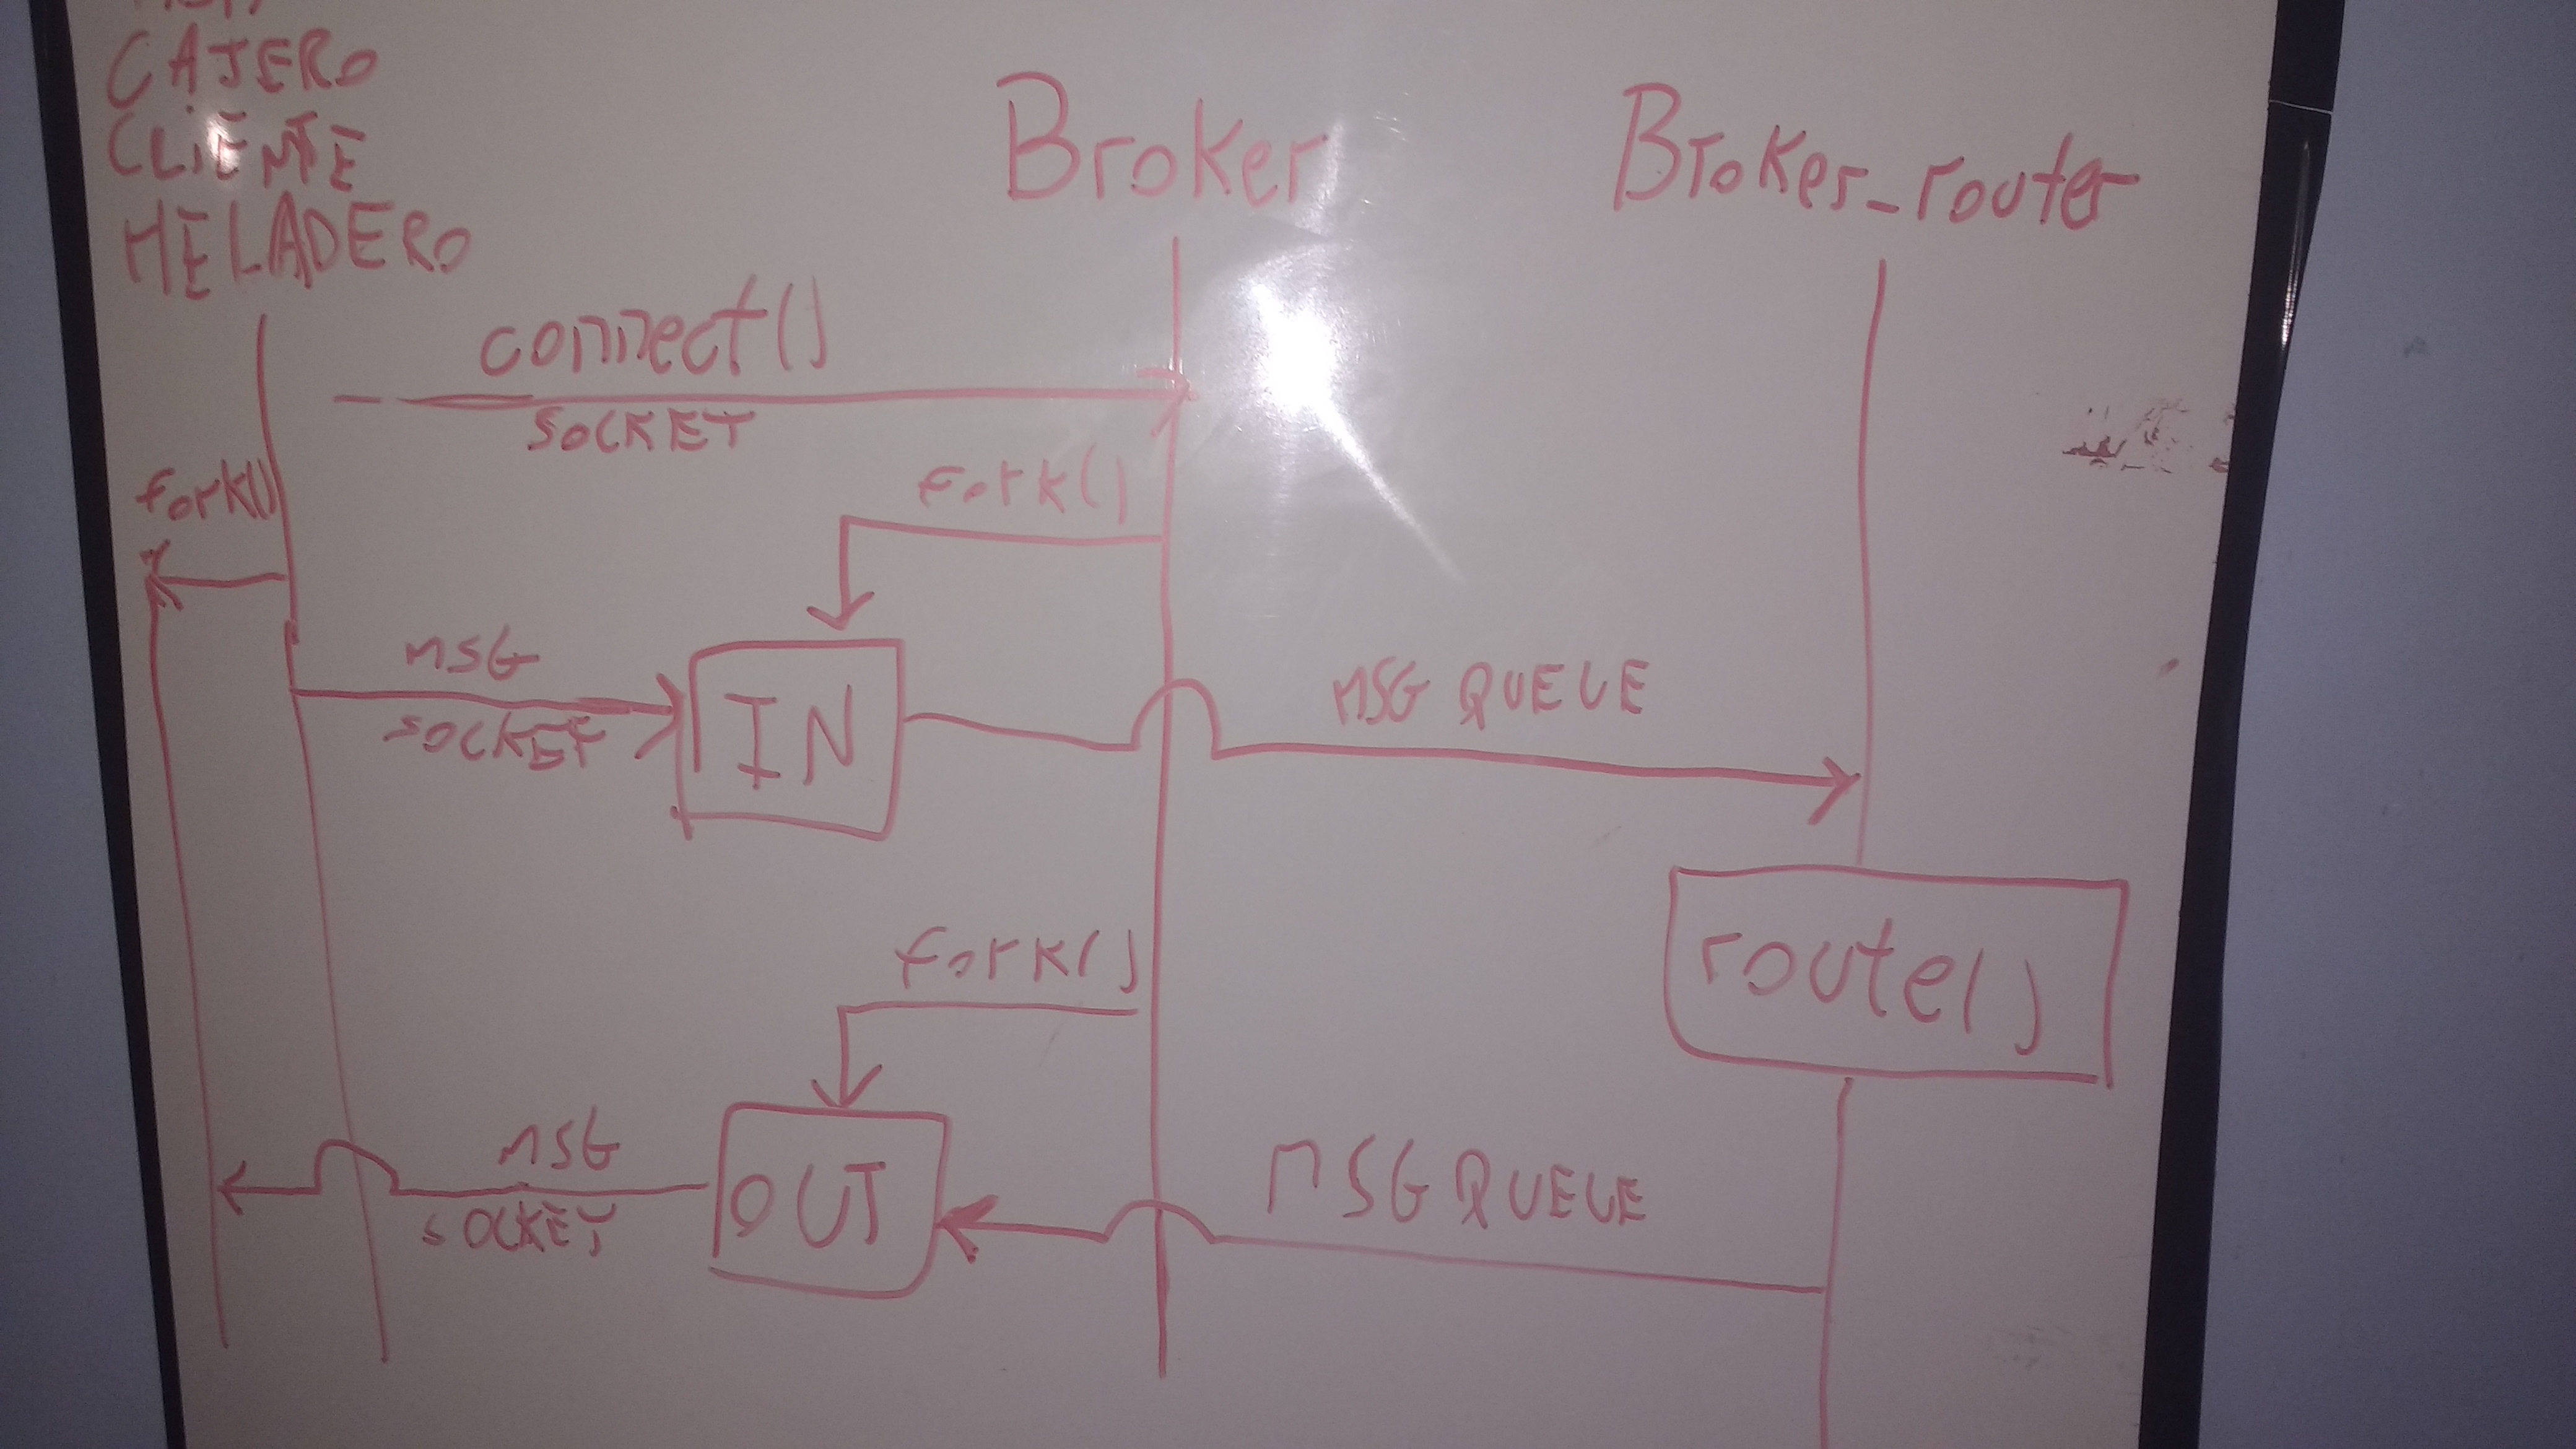 CAJERO
CLIENTE
HELADERO
Broker
Broker_router
connect()
SOCKET
fork()
fork()
MSG
SOCKET
IN
MSG QUEUE
fork()
route()
MSG
SOCKET
OUT
MSG QUEUE